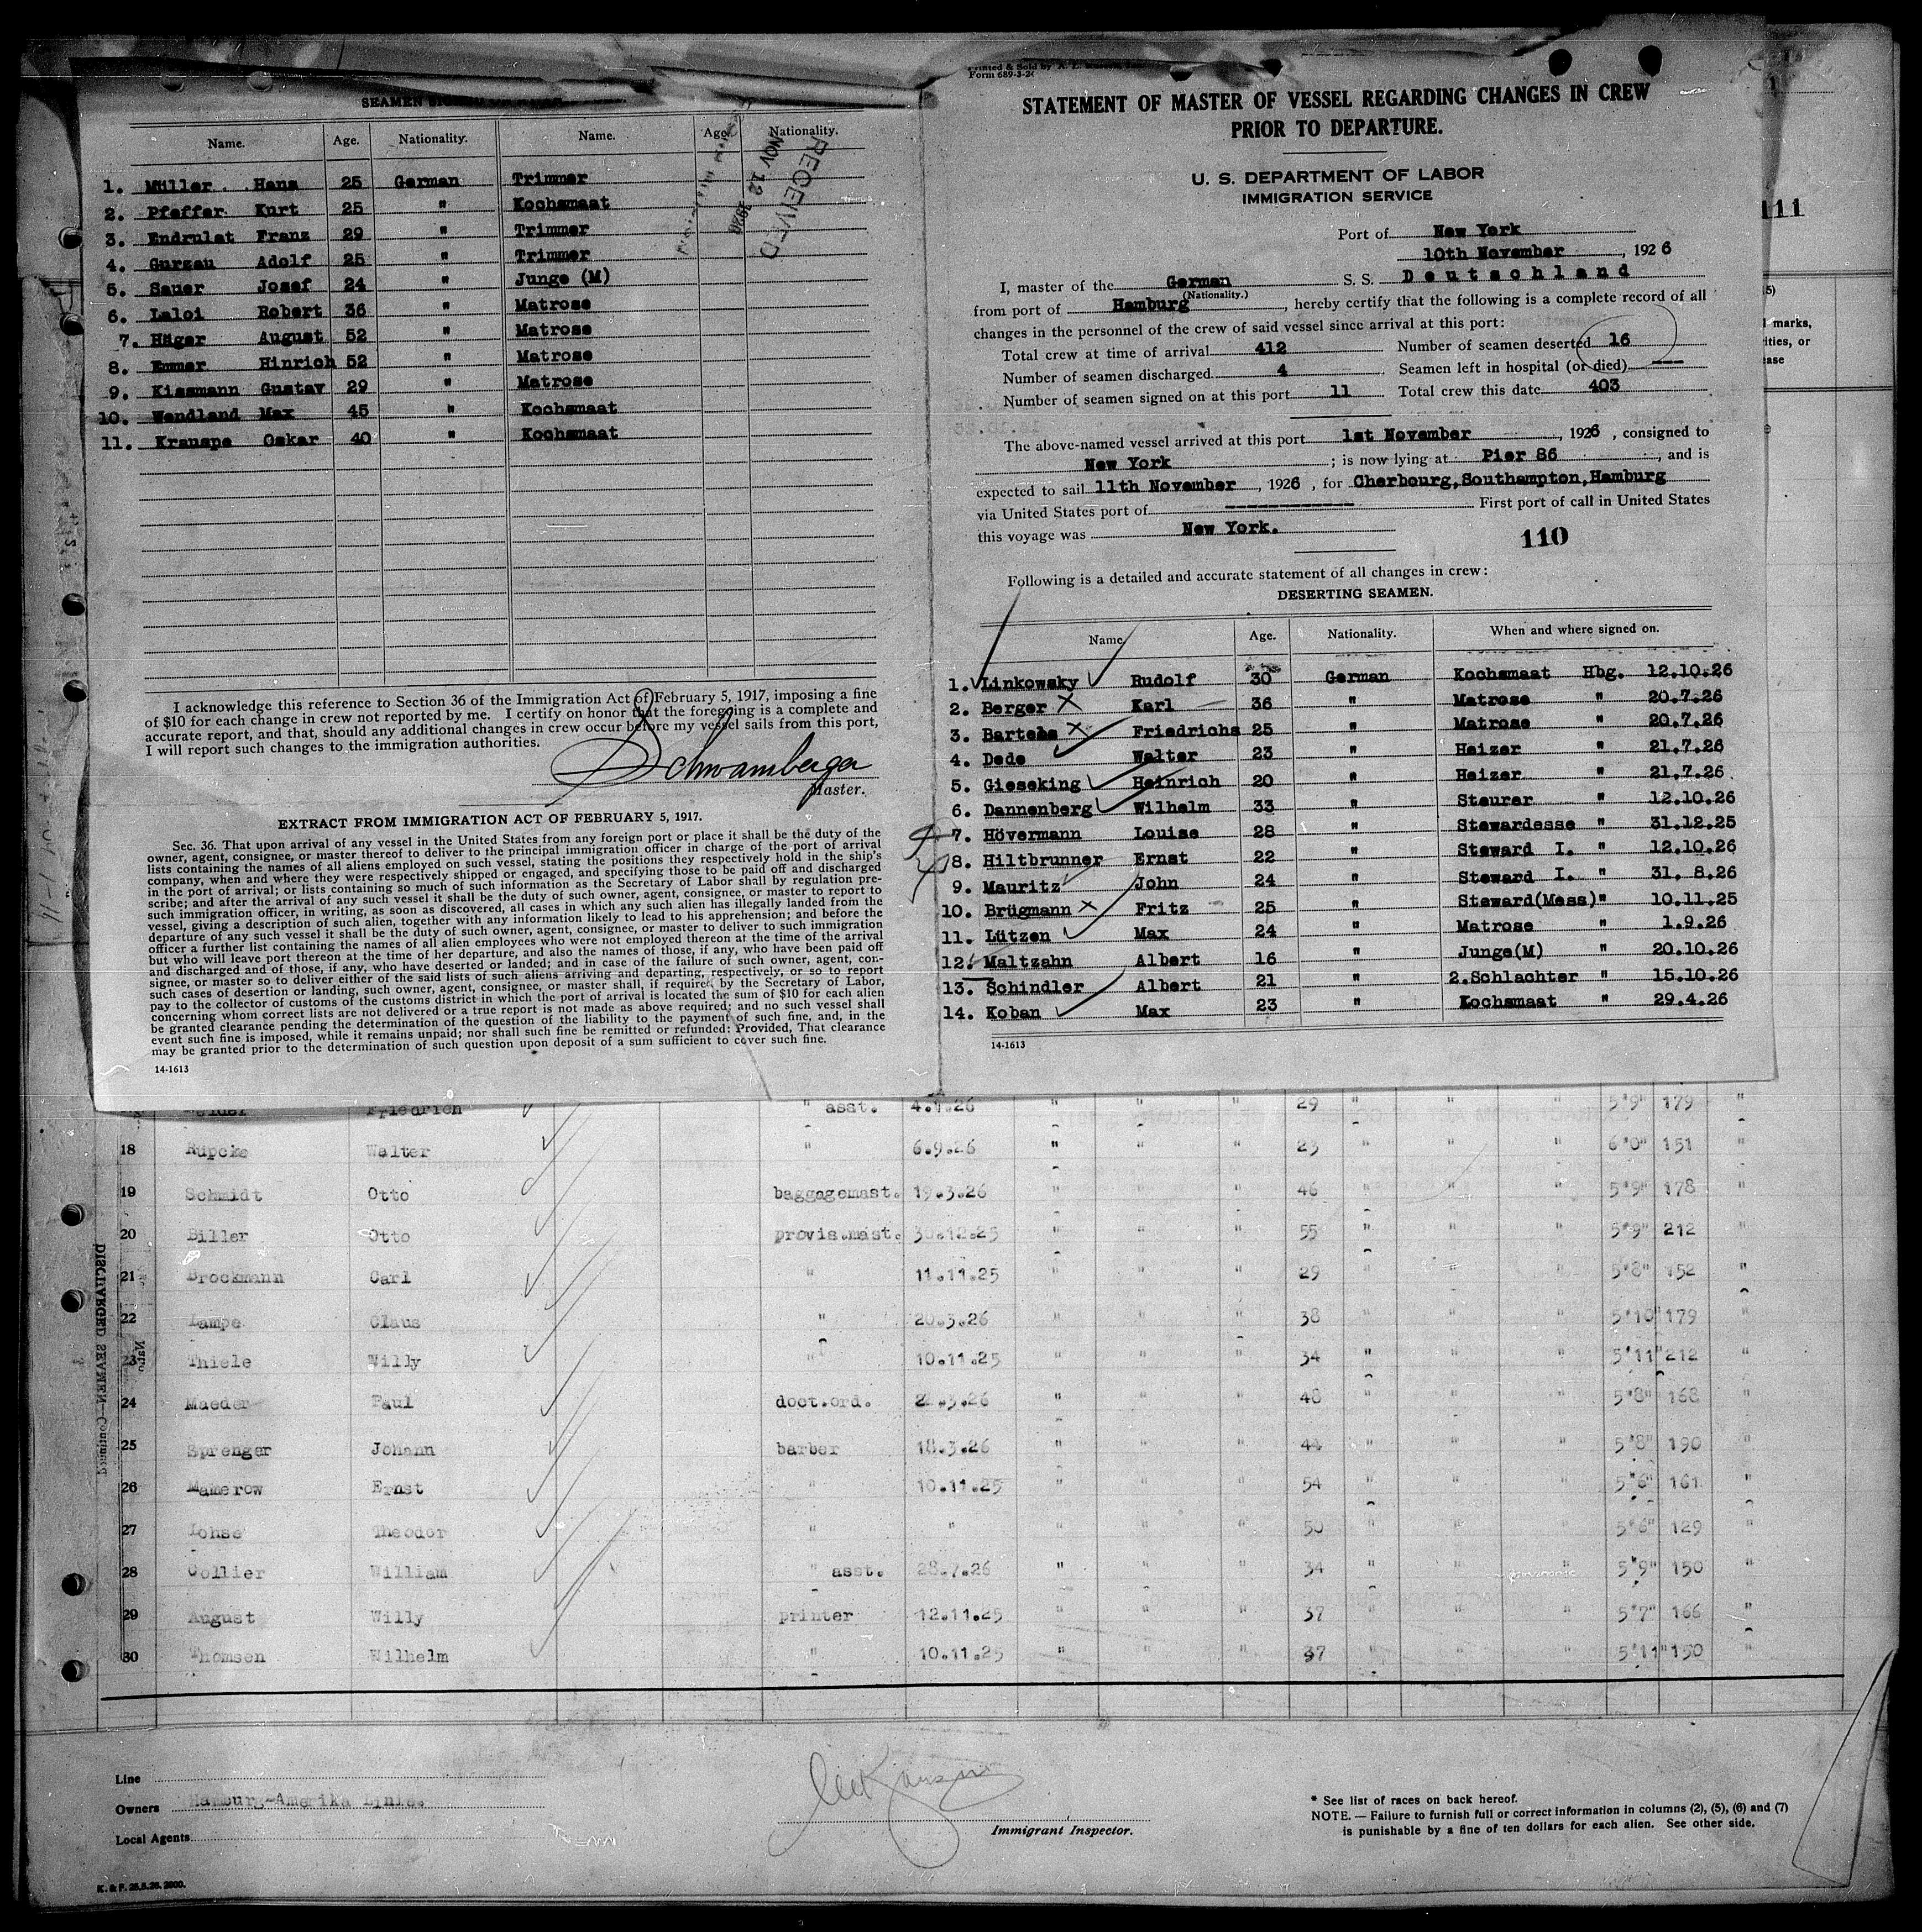 SEAMEN
Name. Age. Nationality. Name. Age. Nationality.
RECEIVED
NOV 12 1926
1. Müller Hans 25 German Trimmer
2. Pfeffer Kurt 25 " Kochsmaat
3. Endrulat Franz 29 " Trimmer
4. Gurzau Adolf 25 " Trimmer
5. Sauer Josef 24 " Junge (M)
6. Laloi Robert 36 " Matrose
7. Häger August 52 " Matrose
8. Emmer Hinrich 52 " Matrose
9. Kissmann Gustav 29 " Matrose
10. Wendland Max 45 " Kochsmaat
11. Kranspe Oskar 40 " Kochsmaat
I acknowledge this reference to Section 36 of the Immigration Act of February 5, 1917, imposing a fine
of $10 for each change in crew not reported by me. I certify on honor that the foregoing is a complete and
accurate report, and that, should any additional changes in crew occur before my vessel sails from this port,
I will report such changes to the immigration authorities.
Schwamberger
Master.
EXTRACT FROM IMMIGRATION ACT OF FEBRUARY 5, 1917.
Sec. 36. That upon arrival of any vessel in the United States from any foreign port or place it shall be the duty of the
owner, agent, consignee, or master thereof to deliver to the principal immigration officer in charge of the port of arrival
lists containing the names of all aliens employed on such vessel, stating the positions they respectively hold in the ship's
company, when and where they were respectively shipped or engaged, and specifying those to be paid off and discharged
in the port of arrival; or lists containing so much of such information as the Secretary of Labor shall by regulation pre-
scribe; and after the arrival of any such vessel it shall be the duty of such owner, agent, consignee, or master to report to
such immigration officer, in writing, as soon as discovered, all cases in which any such alien has illegally landed from the
vessel, giving a description of such alien, together with any information likely to lead to his apprehension; and before the
departure of any such vessel it shall be the duty of such owner, agent, consignee, or master to deliver to such immigration
officer a further list containing the names of all alien employees who were not employed thereon at the time of the arrival
but who will leave port thereon at the time of her departure, and also the names of those, if any, who have been paid off
and discharged and of those, if any, who have deserted or landed; and in case of the failure of such owner, agent, con-
signee, or master so to deliver either of the said lists of such aliens arriving and departing, respectively, or so to report
such cases of desertion or landing, such owner, agent, consignee, or master shall, if required by the Secretary of Labor,
pay to the collector of customs of the customs district in which the port of arrival is located the sum of $10 for each alien
concerning whom correct lists are not delivered or a true report is not made as above required; and no such vessel shall
be granted clearance pending the determination of the question of the liability to the payment of such fine, and, in the
event such fine is imposed, while it remains unpaid; nor shall such fine be remitted or refunded: Provided, That clearance
may be granted prior to the determination of such question upon deposit of a sum sufficient to cover such fine.
14-1613
Form 689-3-24
STATEMENT OF MASTER OF VESSEL REGARDING CHANGES IN CREW
PRIOR TO DEPARTURE.
U. S. DEPARTMENT OF LABOR
IMMIGRATION SERVICE
Port of New York
10th November, 1926
I, master of the German S. S. Deutschland
(Nationality.)
from port of Hamburg, hereby certify that the following is a complete record of all
changes in the personnel of the crew of said vessel since arrival at this port:
Total crew at time of arrival 412 Number of seamen deserted 16
Number of seamen discharged 4 Seamen left in hospital (or died) —
Number of seamen signed on at this port 11 Total crew this date 403
The above-named vessel arrived at this port 1st November, 1926, consigned to
New York; is now lying at Pier 86, and is
expected to sail 11th November, 1926, for Cherbourg,Southampton,Hamburg
via United States port of ------------ First port of call in United States
this voyage was New York.
110
Following is a detailed and accurate statement of all changes in crew:
DESERTING SEAMEN.
Name. Age. Nationality. When and where signed on.
1. Linkowsky Rudolf 30 German Kochsmaat Hbg. 12.10.26
2. Berger Karl 36 " Matrose " 20.7.26
3. Bartels Friedrichs 25 " Matrose " 20.7.26
4. Dede Walter 23 " Heizer " 21.7.26
5. Gieseking Heinrich 20 " Heizer " 21.7.26
6. Dannenberg Wilhelm 33 " Steurer " 12.10.26
7. Hövermann Louise 28 " Stewardesse " 31.12.25
8. Hiltbrunner Ernst 22 " Steward I. " 12.10.26
9. Mauritz John 24 " Steward I. " 31. 8.26
10. Brügmann Fritz 25 " Steward(Mess)" 10.11.25
11. Lützen Max 24 " Matrose " 1.9.26
12. Maltzahn Albert 16 " Junge(M) " 20.10.26
13. Schindler Albert 21 " 2.Schlachter " 15.10.26
14. Koban Max 23 " Kochsmaat " 29.4.26
14-1613
111
marks,
Friedrich " asst. 4.1.26 " " " 29 " " " 5'9" 179 "
18 Rüpcke Walter " 6.9.26 " " " 23 " " " 6'0" 151 "
19 Schmidt Otto baggagemast. 19.3.26 " " " 46 " " " 5'9" 178 "
20 Biller Otto provis.mast. 30.12.25 " " " 55 " " " 5'9" 212 "
21 Brockmann Carl " 11.11.25 " " " 29 " " " 5'8" 152 "
22 Lampe Claus " 20.3.26 " " " 38 " " " 5'10" 179 "
23 Thiele Willy " 10.11.25 " " " 34 " " " 5'11" 212 "
24 Maeder Paul doct.ord. 2.3.26 " " " 48 " " " 5'8" 168 "
25 Sprenger Johann barber 18.3.26 " " " 44 " " " 5'8" 190 "
26 Mamerow Ernst " 10.11.25 " " " 54 " " " 5'6" 161 "
27 Lohse Theodor " " " " " 50 " " " 5'6" 129 "
28 Collier William " asst. 28.7.26 " " " 34 " " " 5'9" 150 "
29 August Willy printer 12.11.25 " " " 37 " " " 5'7" 166 "
30 Thomsen Wilhelm " 10.11.25 " " " 37 " " " 5'11" 150 "
DISCHARGED SEAMEN—Continued
Line
Owners Hamburg-Amerika Linie.
Local Agents
Immigrant Inspector.
* See list of races on back hereof.
NOTE. — Failure to furnish full or correct information in columns (2), (5), (6) and (7)
is punishable by a fine of ten dollars for each alien. See other side.
K. & P. 25.5.26. 2000.